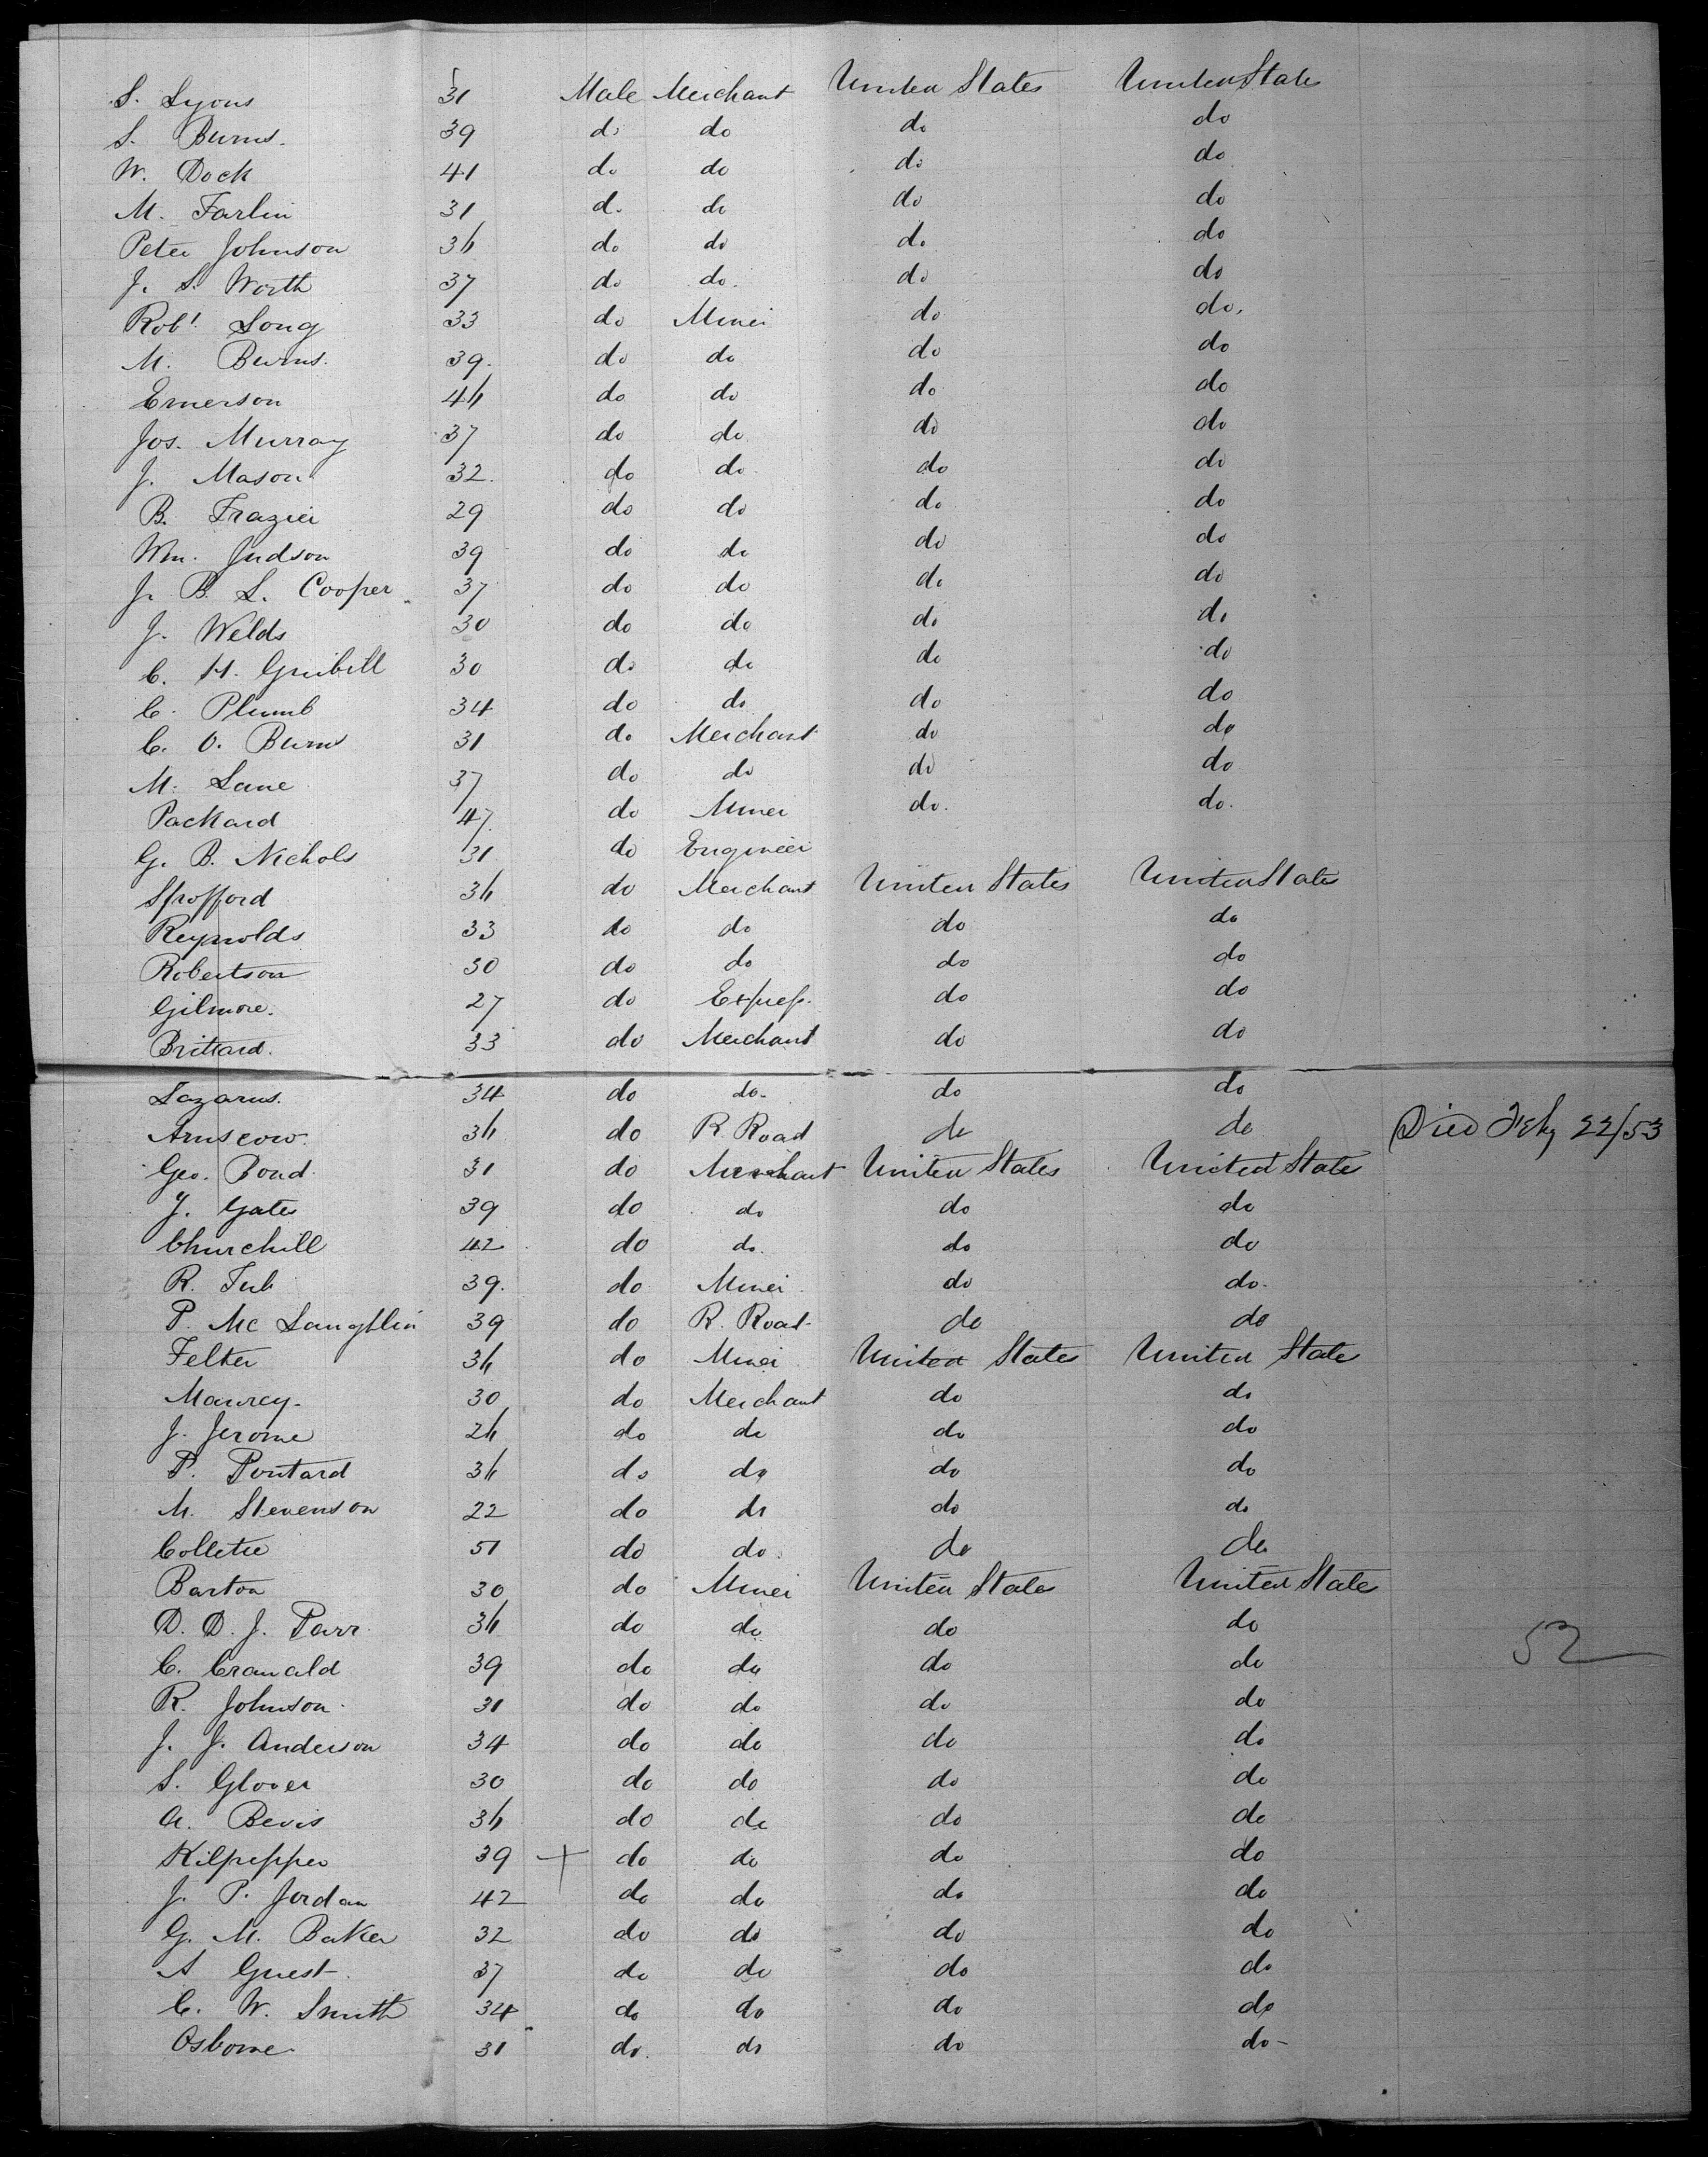 S. Lyons 31 Male Merchant United States United State
S. Burns. 39 do do do do
W. Dock 41 do do do do
M. Farlin 31 do do do do
Peter Johnson 36 do do do do
J. S. Worth 37 do do. do do
Robt. Long 33 do Miner do do.
M. Burns. 39. do do do do
Emerson 46 do do do do
Jos. Murray 37 do do do do
J. Mason 32. do do do do
B. Frazier 29 do do do do
Wm. Judson 39 do do do do
J. B. L. Cooper 37 do do do do
J. Welds 30 do do do do
C. H. 30 do do do do
C. Plumb 34 do do do do
C. O. Burns 31 do Merchant do do
M. Lane 37 do do do do
Packard 47. do Miner do. do.
G. B. Nichols 31 do Engineer
Spofford 36 do Merchant United States United States
Reynolds 33 do do do do
Robertson 30 do do do do
Gilmore. 27 do Express. do do
Brittard. 33 do Merchant do do
Lazarus. 34 do do. do do
36 do R. Road do do Died Feby 22/53
Geo. Bond. 31 do Merchant United States United State
J. Gates 39 do do do do
Churchill 42 do do. do do
R. 39. do Miner do do.
P. Mc Laughlin 39 do R. Road do do
Felter 36 do Miner United States United State
30 do Merchant do do
J. Jerome 26 do do do do
P. Pontard 36 do do do do
M. Stevenson 22 do do do do
Colletee 51 do do. do do
Barton 30 do Miner United States United State
D. D. J. Parr. 36 do do do do
C. Cranald 39 do do do do 52
R. Johnson. 31 do do do do
J. J. Anderson 34 do do do do
S. Glover 30 do do do do
A. Bevis 36 do do do do
Kilpepper 39 + do do do do
J. P. Jordan 42 do do do do
G. M. Baker 32 do do do do
A Guest 37 do do do do
C. W. Smith 34 do do do do
Osborne. 31 do. do do do-